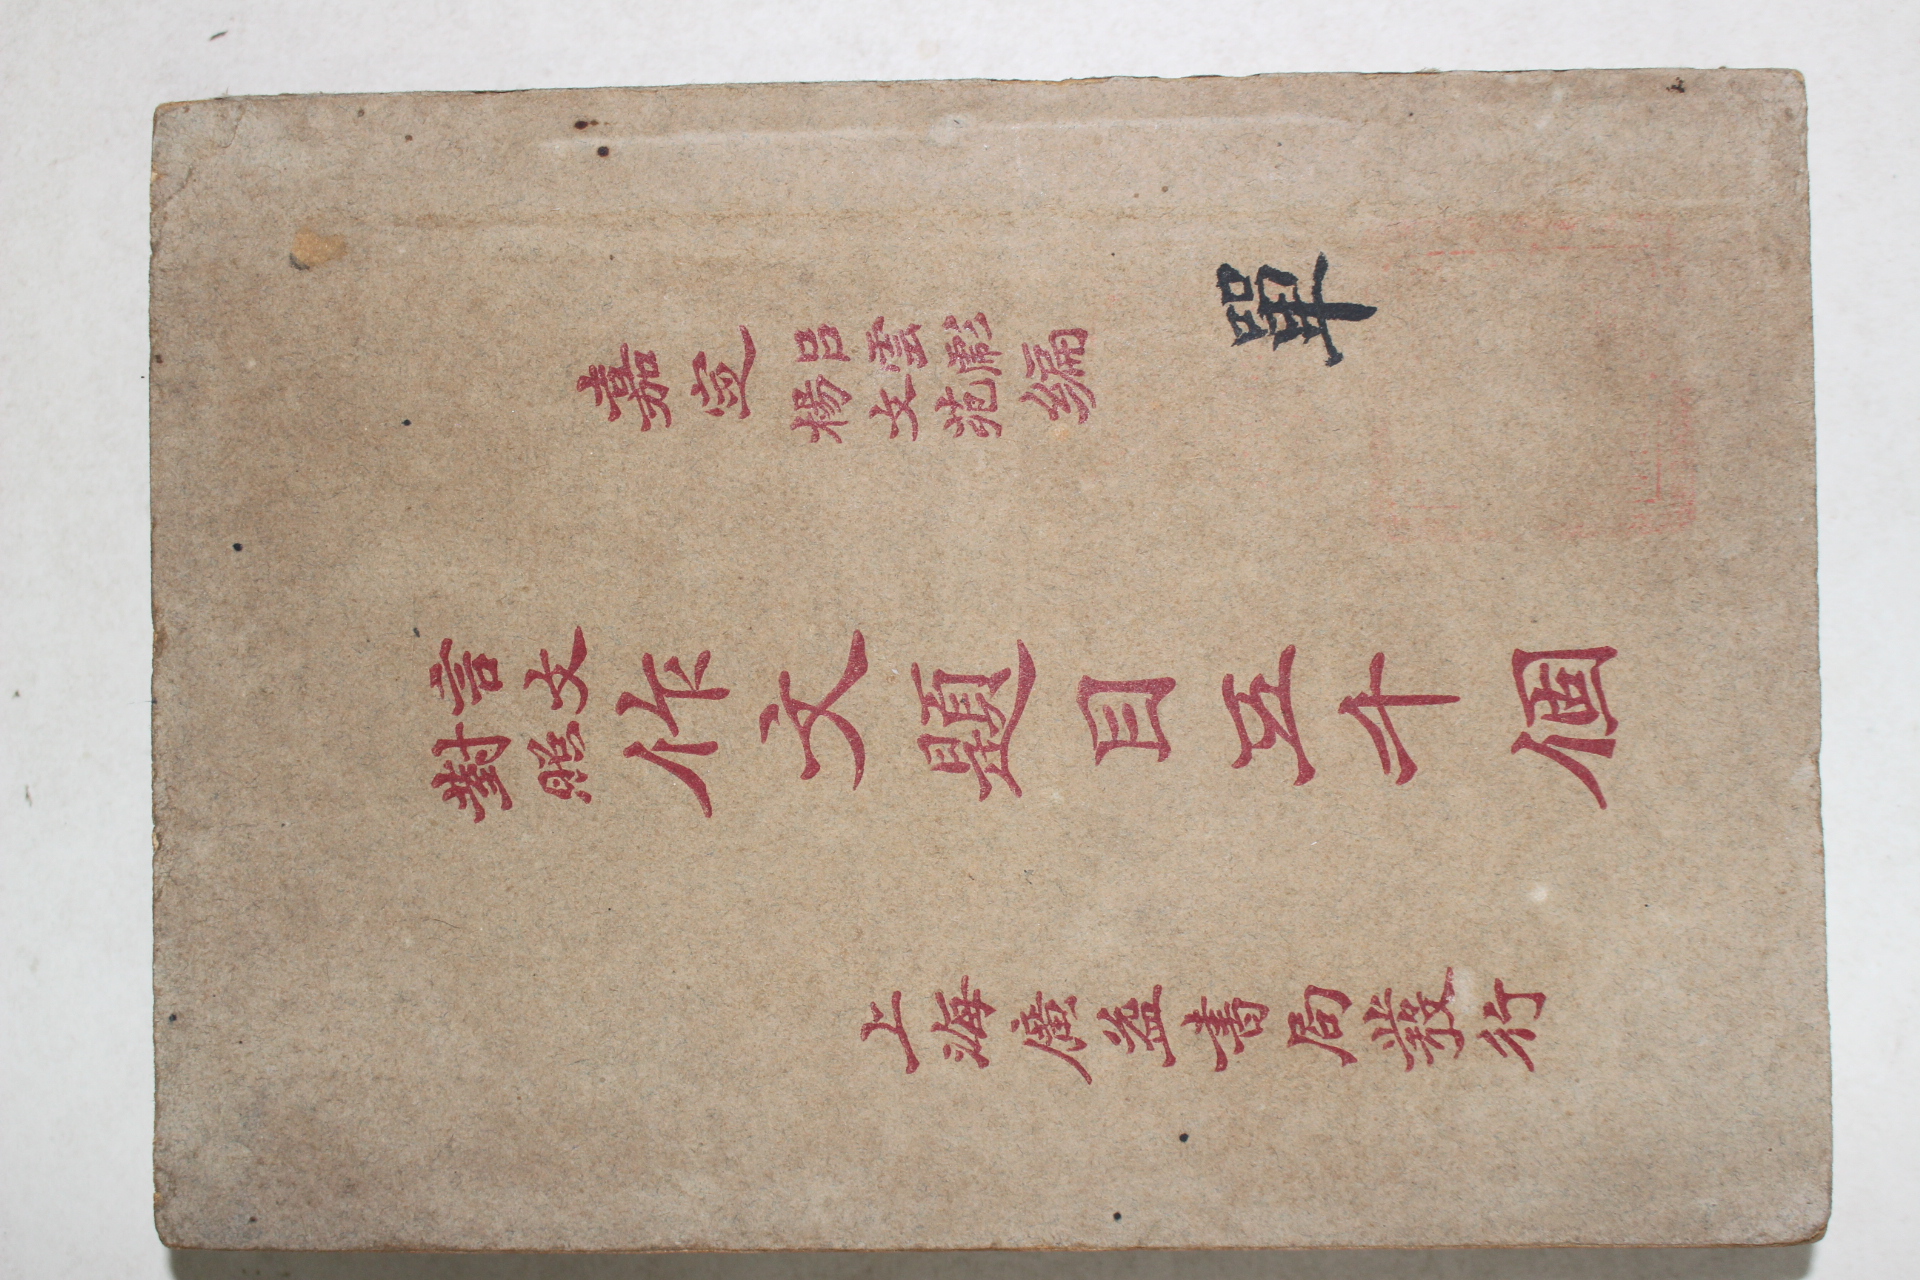 嘉定
呂雲彪
楊文苑
編
言文
對照
作文題目五千個
上海廣益書局發行
單